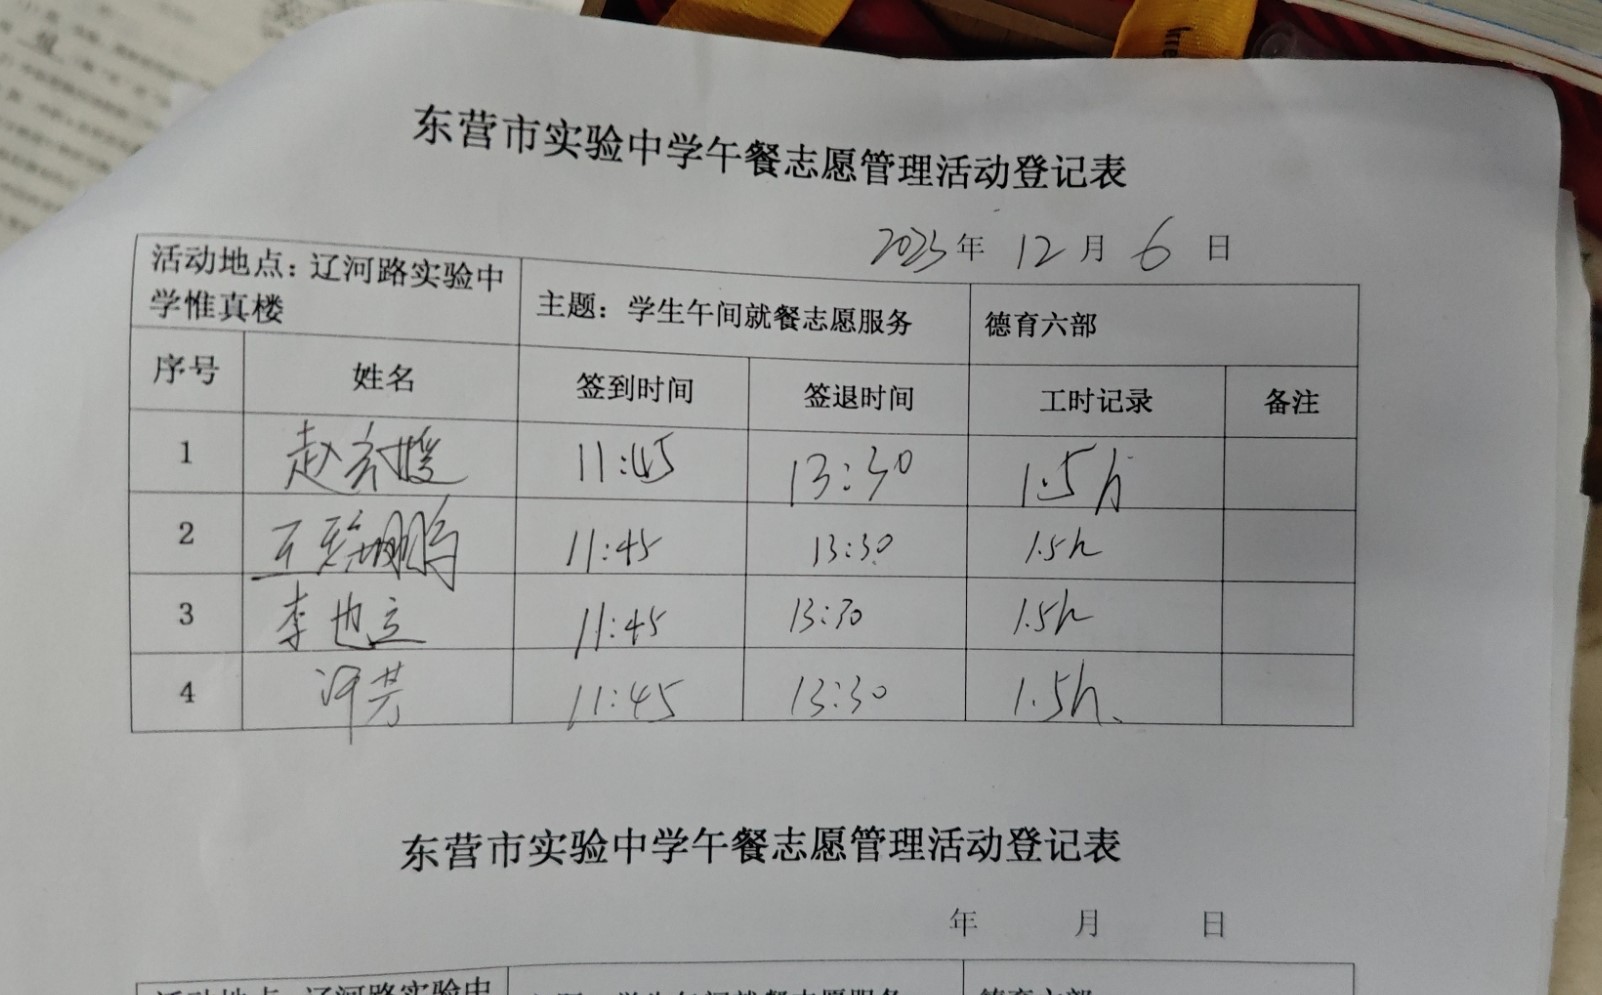 东营市实验中学午餐志愿管理活动登记表
2023年 12月 6日
活动地点：辽河路实验中
学惟真楼
主题：学生午间就餐志愿服务
德育六部
序号 姓名 签到时间 签退时间 工时记录 备注
1 赵 11:45 13:30 1.5h
2 11:45 13:30 1.5h
3 李 11:45 13:30 1.5h
4 11:45 13:30 1.5h
东营市实验中学午餐志愿管理活动登记表
年 月 日
活动地点：辽河路实验中
主题：学生午间就餐志愿服务
德育六部